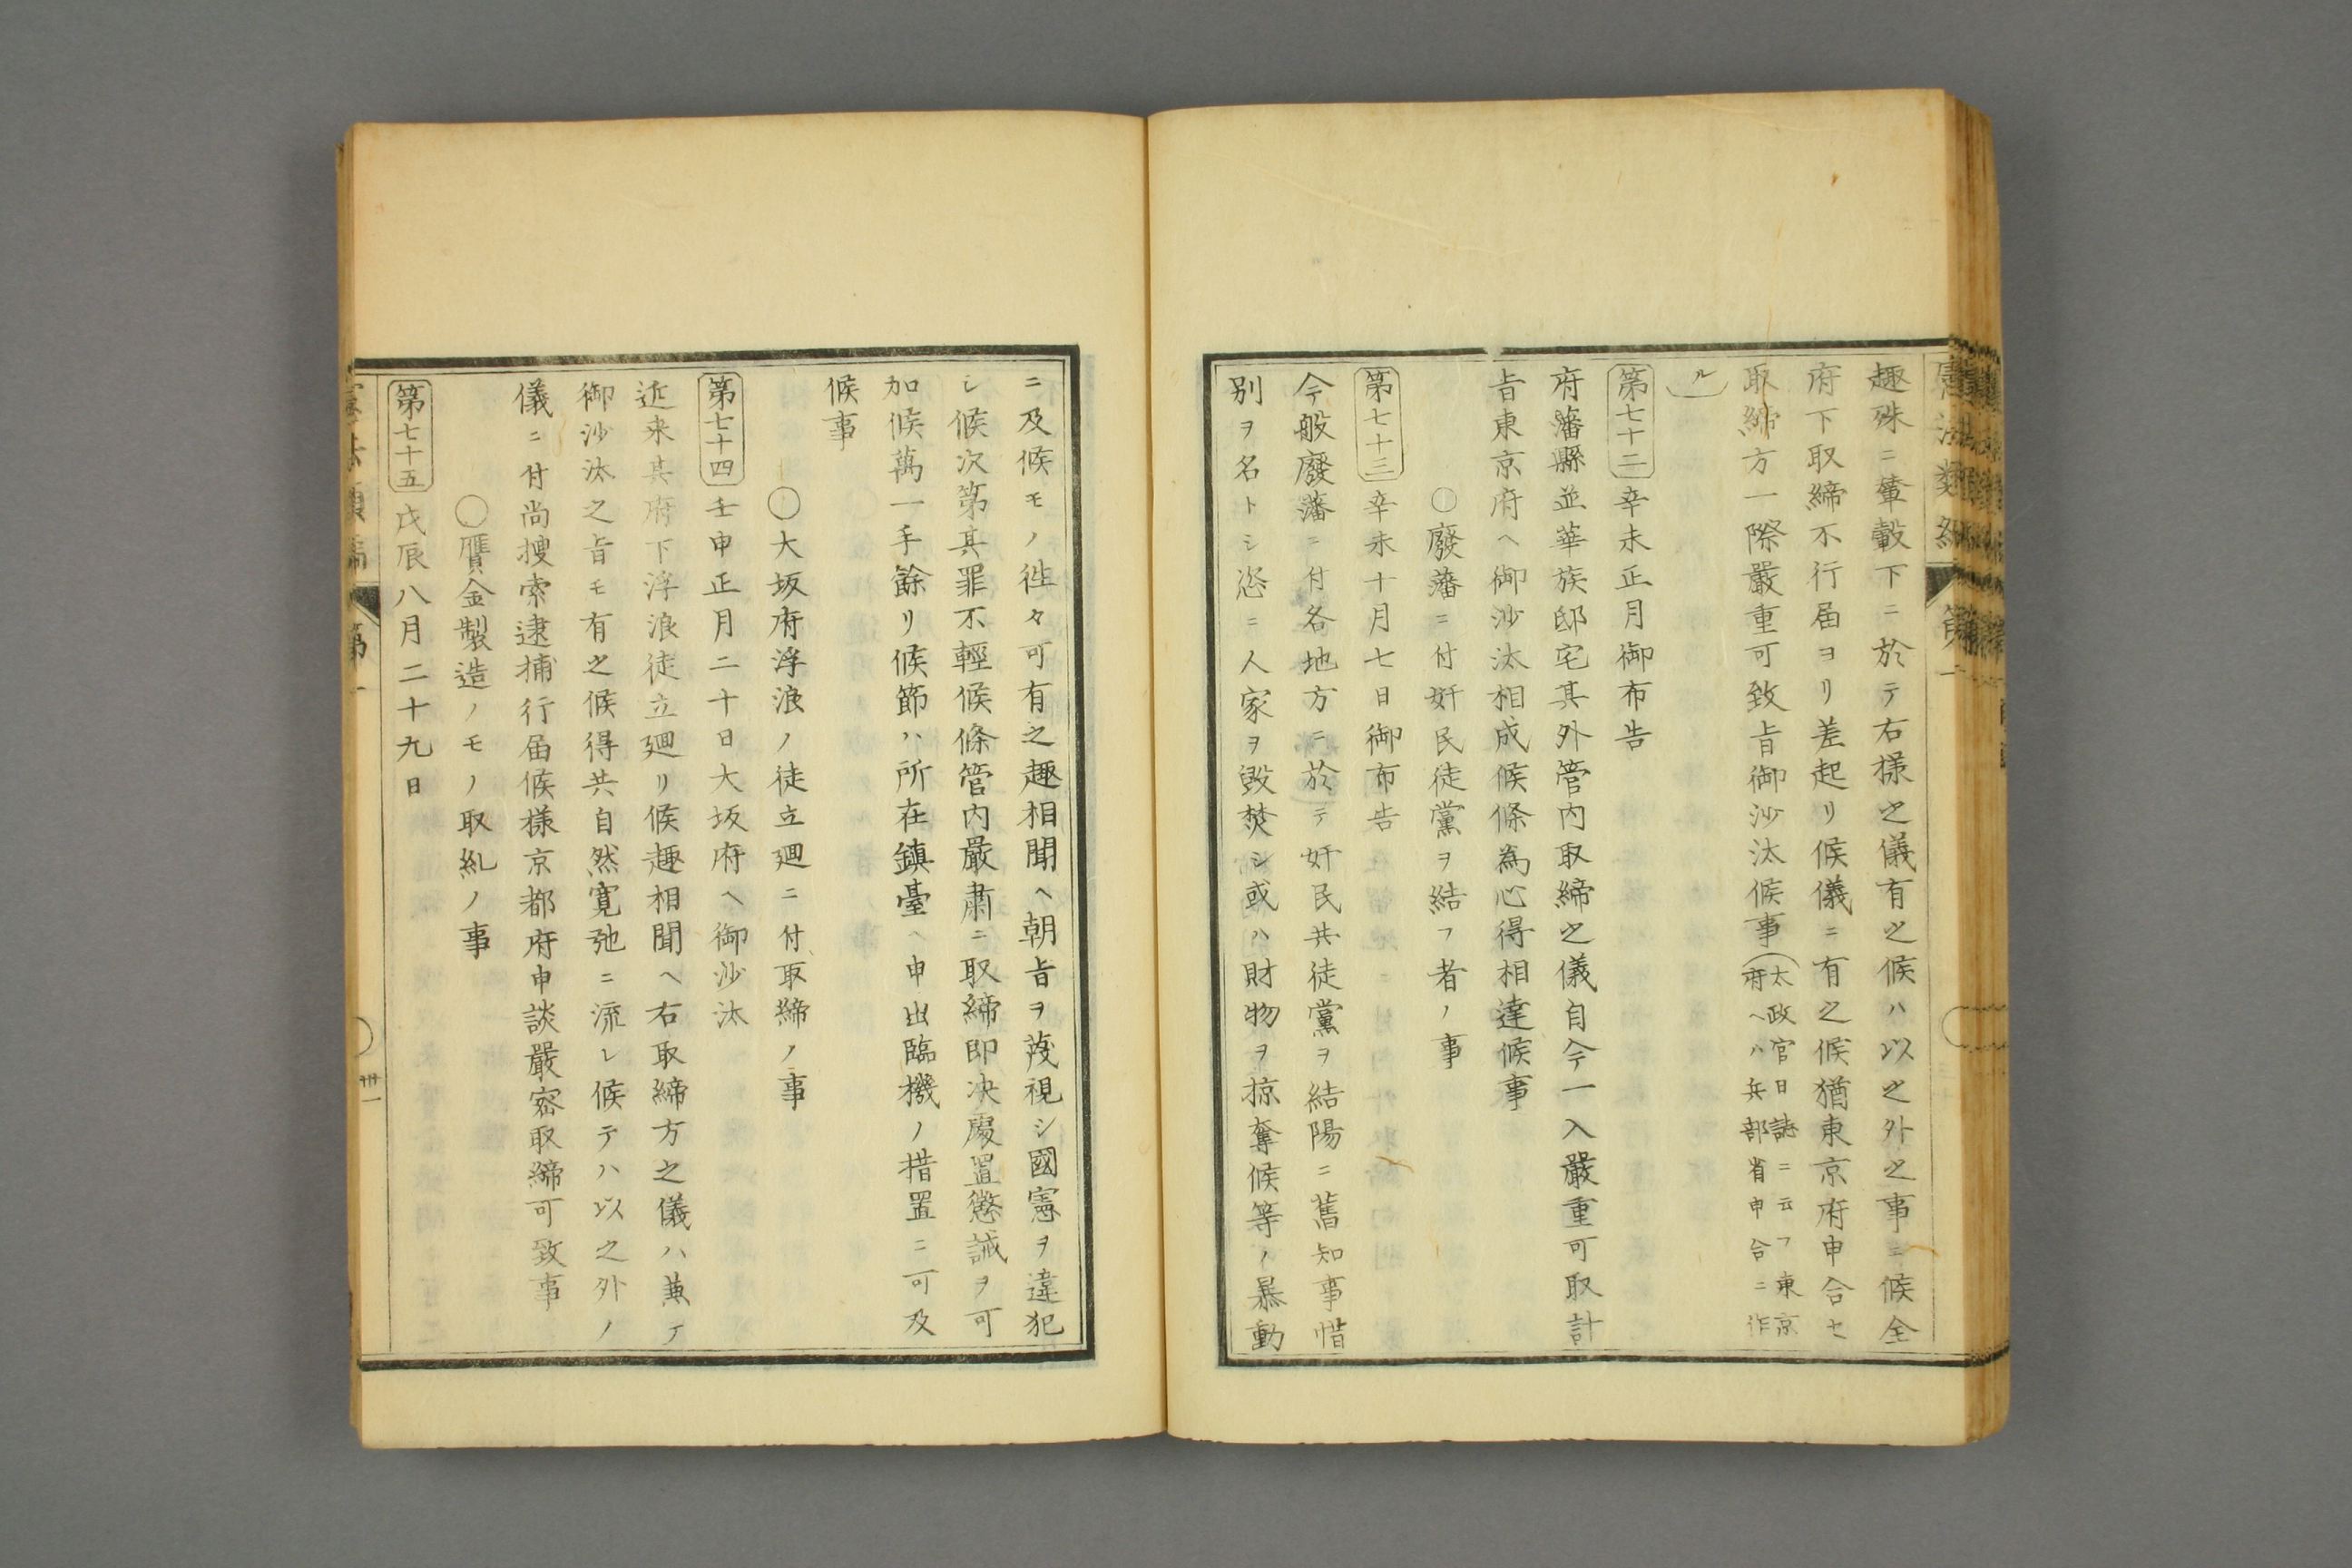 趣殊ニ輦轂下ニ於テ右様之儀有之候ハ以之外之事ニ候全
府下取締不行届ヨリ差起リ候儀ニ有之候猶東京府申合セ
取締方一際嚴重可致旨御沙汰候事(太政官日誌ニ云フ東京
府ヘハ兵部省申合ニ作
ル)
第七十二 辛未正月御布告
府藩縣並華族邸宅其外管内取締之儀自今一入嚴重可取計
旨東京府ヘ御沙汰相成候條為心得相達候事
○廢藩ニ付奸民徒黨ヲ結フ者ノ事
第七十三 辛未十月七日御布告
今般廢藩ニ付各地方ニ於テ奸民共徒黨ヲ結陽ニ舊知事惜
別ヲ名トシ恣ニ人家ヲ毀焚シ或ハ財物ヲ掠奪候等ノ暴動
ニ及候モノ徃々可有之趣相聞ヘ朝旨ヲ蔑視シ國憲ヲ違犯
シ候次第其罪不輕候條管内嚴肅ニ取締即决處置懲誡ヲ可
加候萬一手餘リ候節ハ所在鎮臺ヘ申出臨機ノ措置ニ可及
候事
○大坂府浮浪ノ徒立廻ニ付取締ノ事
第七十四 壬申正月二十日大坂府ヘ御沙汰
近来其府下浮浪徒立廻リ候趣相聞ヘ右取締方之儀ハ兼テ
御沙汰之旨モ有之候得共自然寛弛ニ流レ候テハ以之外ノ
儀ニ付尚搜索逮捕行届候様京都府申談嚴密取締可致事
○贋金製造ノモノ取糺ノ事
第七十五 戊辰八月二十九日
卅一